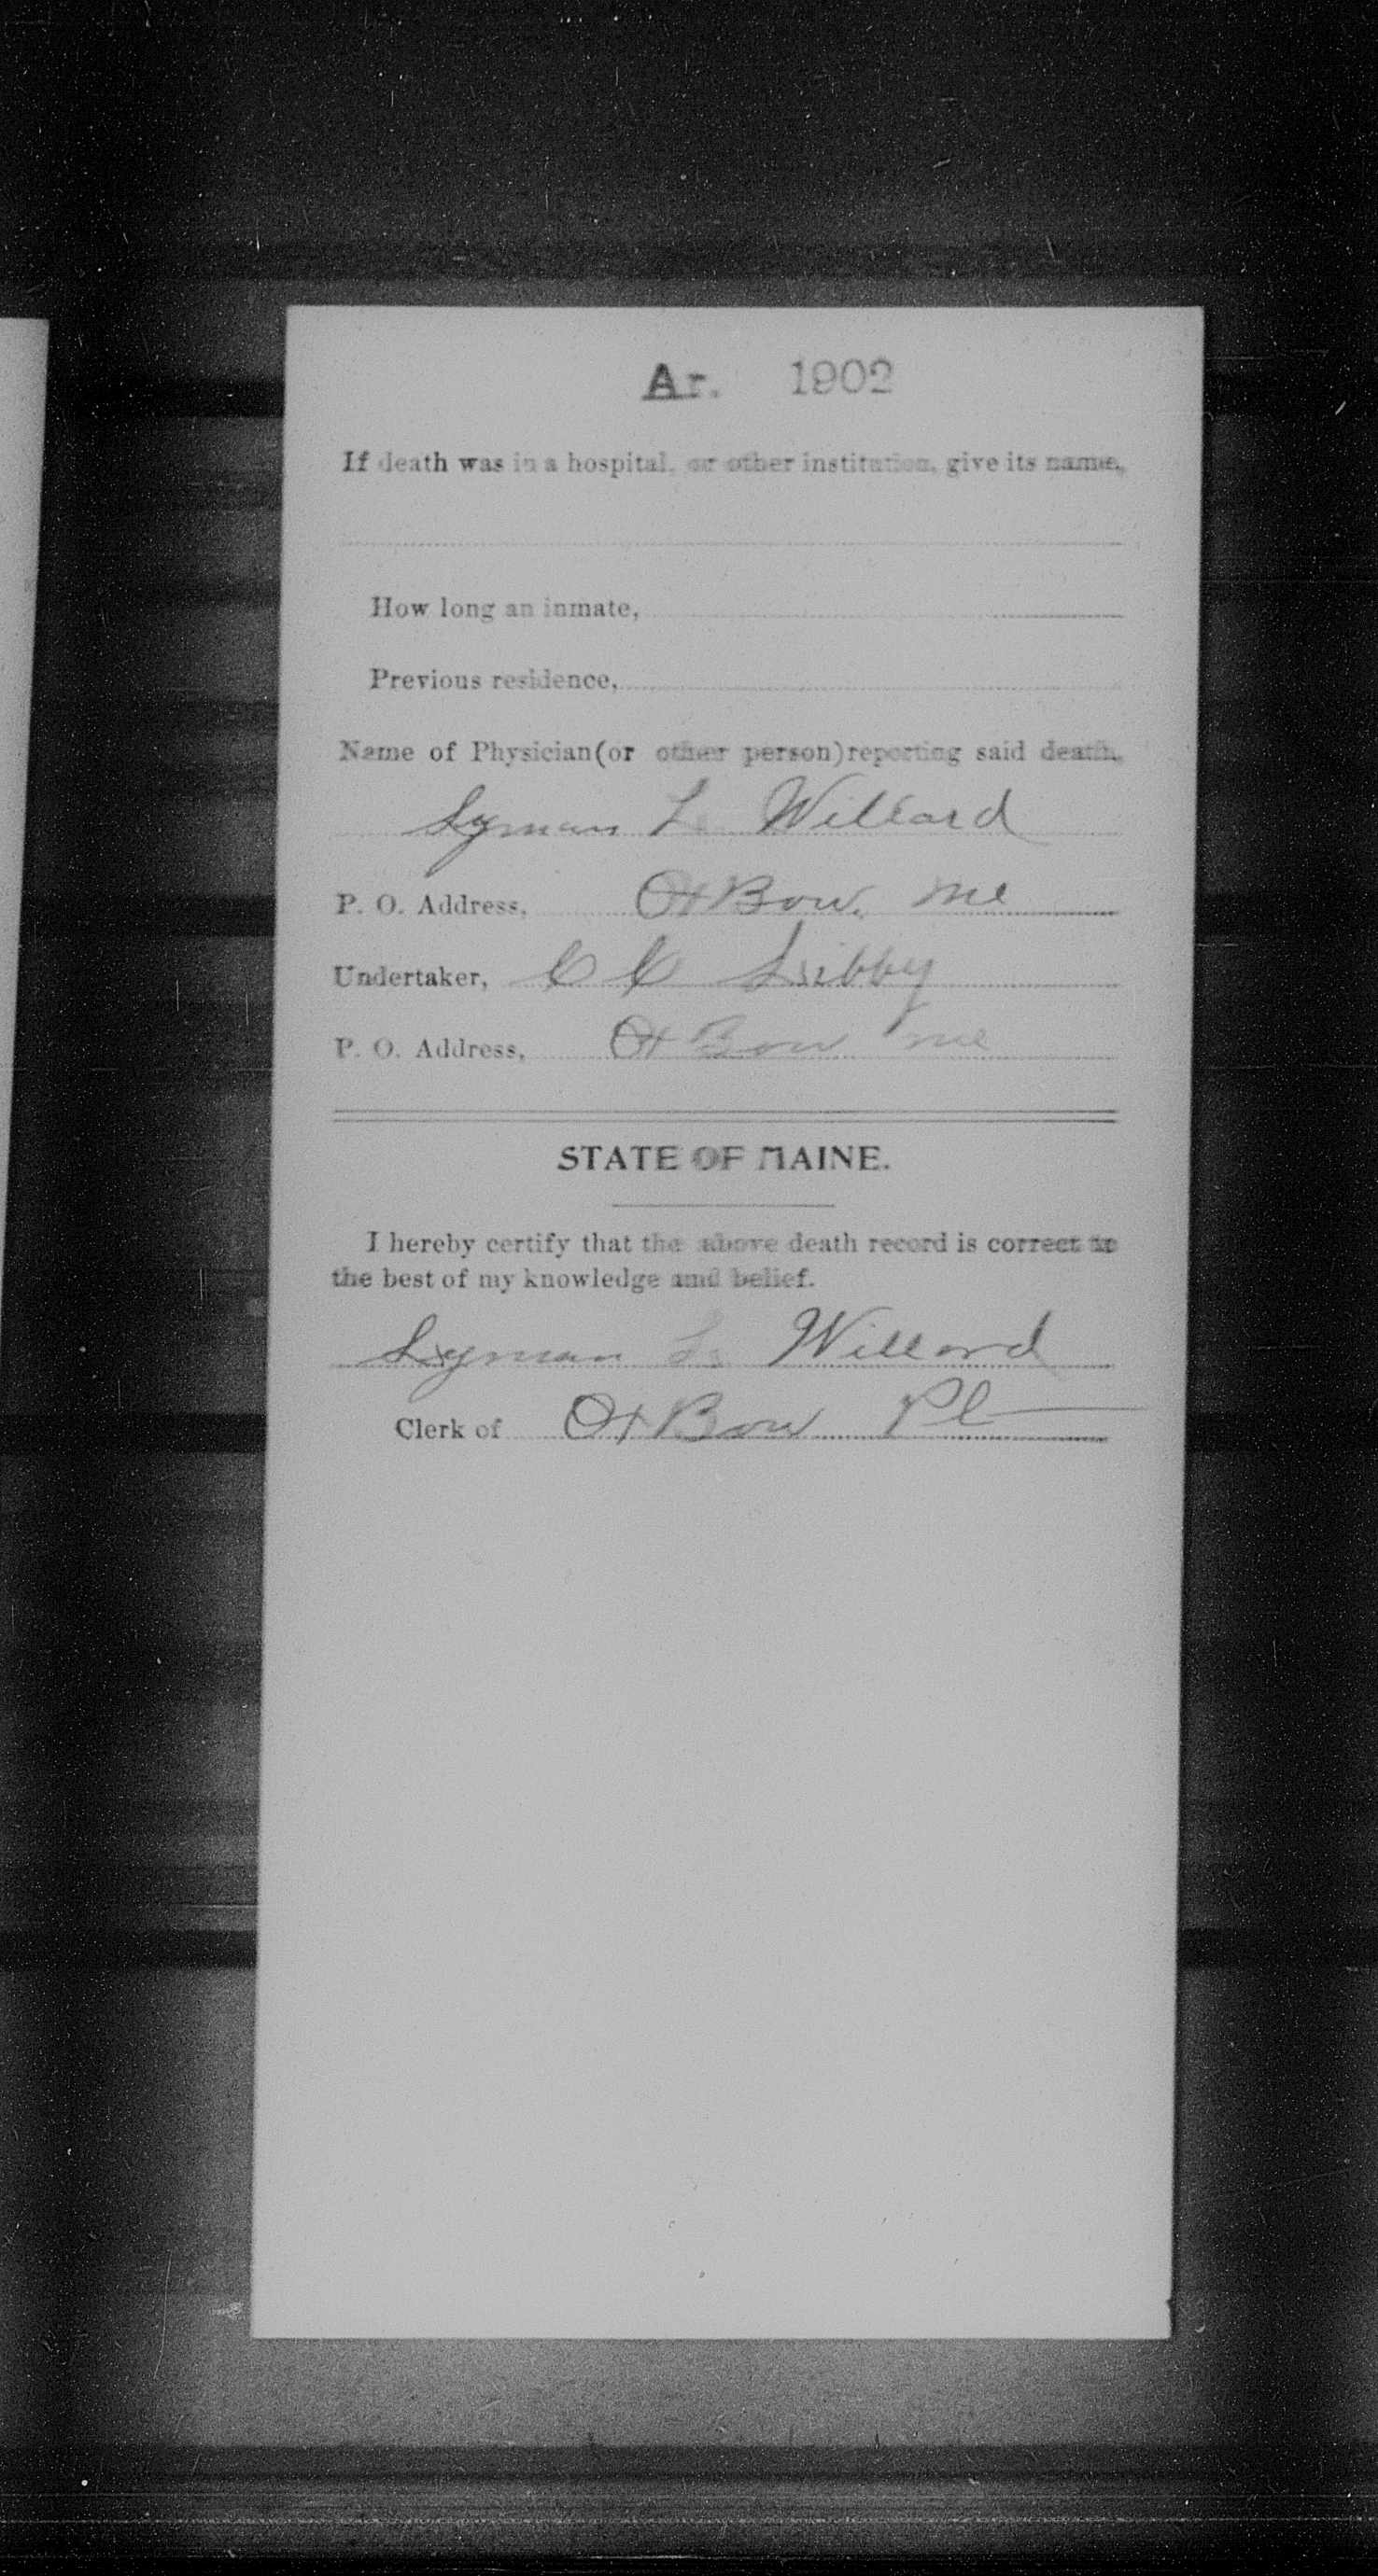 Ar. 1902
If death was in a hospital, or other institution, give its name,
How long an inmate,
Previous residence,
Name of Physician (or other person) reporting said death,
Lyman L. Willard
P. O. Address, OxBow, Me
Undertaker, C C Libby
P. O. Address, OxBow Me
STATE OF MAINE.
I hereby certify that the above death record is correct to
the best of my knowledge and belief.
Lyman L. Willard
Clerk of OxBow Pl